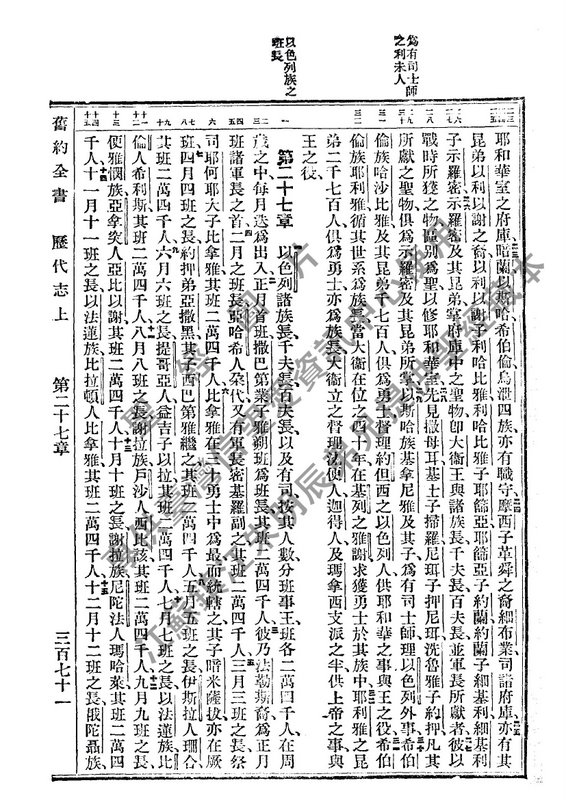 爲有司士師
之利未人
以色列族之
班長
耶和華室之府庫暗蘭以斯哈希伯倫烏泄四族亦有職守摩西子革舜之裔細布業司諸府庫亦有其
昆弟以利以謝之裔以利以謝子利哈比雅利哈比雅子耶篩亞耶篩亞子約蘭約蘭子細基利細基利
子示羅密示羅密及其昆弟掌府庫中之聖物卽大衛王與諸族長千夫長百夫長並軍長所獻者彼以
戰時所獲之物區別爲聖以修耶和華室先見撒母耳基士子掃羅尼珥子押尼珥洗魯雅子約押凡其
所獻之聖物俱爲示羅密及其昆弟所治以斯哈族基拿尼雅及其子爲有司士師理以色列外事希伯
倫族哈沙比雅及其昆弟千七百人俱爲勇士督理約但西之以色列人供耶和華之事與王之役希伯
倫族耶利雅循其世系爲族長當大衛在位之四十年在基列之雅謝求獲勇士於其族中耶利雅之昆
弟二千七百人俱爲勇士亦爲族長大衛立之督理流便人迦得人及瑪拿西支派之半供上帝之事與
王之役
第二十七章 以色列諸族長千夫長百夫長以及有司按其人數分班事王班各二萬四千人在周
歲之中每月迭爲出入正月首班撒巴第業子雅朔班爲班長其班二萬四千人彼乃法勒斯裔爲正月
班諸軍長之首二月之班長亞哈希人朶代又有軍長密基羅副之其班二萬四千人三月三班之長祭
司耶何耶大子比拿雅其班二萬四千人比拿雅在三十勇士中爲最而統轄之其子暗米薩拔亦在厥
班四月四班之長約押弟亞撒黑其子西巴第雅繼之其班二萬四千人五月五班之長伊斯拉人珊合
其班二萬四千人六月六班之長提哥亞人益吉子以拉其班二萬四千人七月七班之長以法蓮族比
倫人希利斯其班二萬四千人八月八班之長謝拉族戶沙人西比該其班二萬四千人九月九班之長
便雅憫族亞拿突人亞比以謝其班二萬四千人十月十班之長謝拉族尼陀法人瑪哈萊其班二萬四
千人十一月十一班之長以法蓮族比拉頓人比拿雅其班二萬四千人十二月十二班之長俄陀聶族
舊約全書 歷代志上 第二十七章 三百七十一